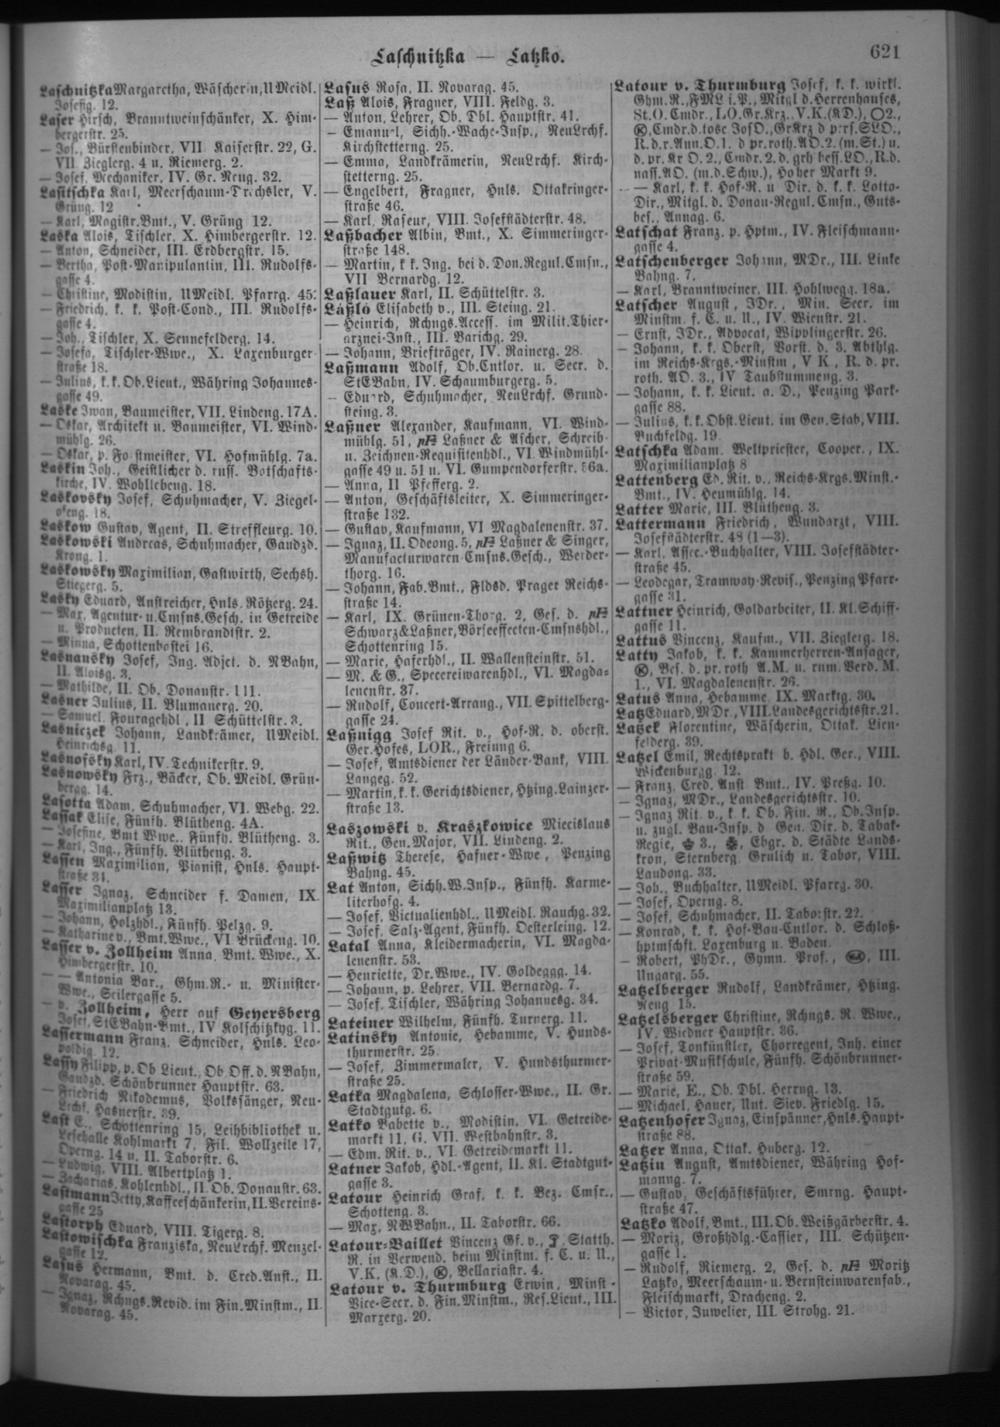 Laschnitzka — Latzko.
621
Laschnitzka Margaretha, Wäscherin, UMeidl.
Josefig. 12.
Laser Hirsch, Branntweinschänker, X. Him-
bergerstr. 25.
— Jos., Bürstenbinder, VII Kaiserstr. 22, G.
VII Zieglerg. 4 u. Riemerg. 2.
— Josef, Mechaniker, IV. Gr. Neug. 32.
Lasitschka Karl, Meerschaum-Drechsler, V.
Grüng. 12
— Karl, Magistr.Bmt., V. Grüng 12.
Laska Alois, Tischler, X. Himbergerstr. 12.
— Anton, Schneider, III. Erdbergstr. 15.
— Bertha, Post-Manipulantin, III. Rudolfs-
gasse 4.
— Christine, Modistin, UMeidl. Pfarrg. 45.
— Friedrich, k. k. Post-Cond., III. Rudolfs-
gasse 4.
— Joh., Tischler, X. Sennefelderg. 14.
— Josefa, Tischler-Wwe., X. Laxenburger-
straße 18.
— Julius, k.k. Ob.Lieut., Währing Johannes-
gasse 49.
Laske Iwan, Baumeister, VII. Lindeng. 17A.
— Oskar, Architekt u. Baumeister, VI. Wind-
mühlg. 26.
— Oskar, p. Forstmeister, VI. Hofmühlg. 7a.
Laskin Joh., Geistlicher d. russ. Botschafts-
kirche, IV. Wohllebeng. 18.
Laskovsky Josef, Schuhmacher, V. Ziegel-
ofeng. 18.
Laskow Gustav, Agent, II. Streffleurg. 10.
Laskowski Andreas, Schuhmacher, Gaudzd.
Krong. 1.
Laskowsky Maximilian, Gastwirth, Sechsh.
Stiegerg. 5.
Lasky Eduard, Anstreicher, Hnls. Rötzerg. 24.
— Max, Agentur- u.Cmsns.Gesch. in Getreide
u. Producten, II. Rembrandtstr. 2.
— Minna, Schottenbastei 16.
Lasnansky Josef, Ing. Adjct. d. NBahn,
II. Aloisg. 3.
— Mathilde, II. Ob. Donaustr. 111.
Lasner Julius, II. Blumauerg. 20.
— Samuel, Fouragehdl., II Schüttelstr. 3.
Lasniczek Johann, Landkrämer, UMeidl.
Heinrichsg. 11.
Lasnofsky Karl, IV. Technikerstr. 9.
Lasnowsky Frz., Bäcker, Ob. Meidl. Grün-
berg. 14.
Lasotta Adam, Schuhmacher, VI. Webg. 22.
Lassak Elise, Fünfh. Blütheng. 4A.
— Josefine, Bmt Wwe., Fünfh. Blütheng. 3.
— Karl, Ing., Fünfh. Blütheng. 3.
Lassen Maximilian, Pianist, Hnls. Haupt-
straße 31.
Lasser Ignaz, Schneider f. Damen, IX
Maximilianplatz 13.
— Johann, Holzhdl., Fünfh. Pelzg. 9.
— Katharine v., Bmt.Wwe., VI Brückeng. 10.
Lasser v. Zollheim Anna, Bmt. Wwe., X.
Himbergerstr. 10.
— — Antonia Bar., Ghm.R.- u. Minister-
Wwe., Seilergasse 5.
— v. Zollheim, Herr auf Geyersberg
Josef, StEBahn-Bmt., IV Kolschitzkyg. 11.
Lassermann Franz, Schneider, Hnls. Leo-
poldig. 12.
Lassy Filipp, p. Ob Lieut., Ob Off. d. NBahn,
Gaudzd. Schönbrunner Hauptstr. 63.
— Friedrich Nikodemus, Volkssänger, Neu-
Lrchf. Hasnerstr. 39.
Last E., Schottenring 15, Leihbibliothek u.
Lesehalle Kohlmarkt 7, Fil. Wollzeile 17,
Operng. 14 u. II. Taborstr. 6.
— Ludwig, VIII. Albertplatz 1.
— Zacharias, Kohlenhdl., II. Ob. Donaustr. 63.
Lastmann Jetty, Kaffeeschänkerin, II. Vereins-
gasse 25
Lastorph Eduard, VIII. Tigerg. 8.
Lastowischka Franziska, NeuLrchf. Menzel-
gasse 12.
Lasus Hermann, Bmt. d. Cred.Anst., II.
Novarag. 45.
— Ignaz, Rchngs.Revid. im Fin.Minstm., II
Novarag. 45.
Lasus Rosa, II. Novarag. 45.
Laß Alois, Fragner, VIII. Feldg. 3.
— Anton, Lehrer, Ob. Dbl. Hauptstr. 41.
— Emanuel, Sichh.-Wache-Insp., NeuLrchf.
Kirchstetterng. 25.
— Emma, Landkrämerin, NeuLrchf. Kirch-
stetterng. 25.
— Engelbert, Fragner, Hnls. Ottakringer-
straße 46.
— Karl, Raseur, VIII. Josefstädterstr. 48.
Laßbacher Albin, Bmt., X. Simmeringer-
straße 148.
— Martin, k k. Ing. bei d. Don.Regul.Cmsn.,
VII Bernardg. 12.
Laßlauer Karl, II. Schüttelstr. 3.
Laßló Elisabeth v., III. Steing. 21.
— Heinrich, Rchngs.Access. im Milit.Thier-
arznei-Inst., III. Barichg. 29.
— Johann, Briefträger, IV. Rainerg. 28.
Laßmann Adolf, Ob.Cntlor. u. Secr. d.
StEBahn, IV. Schaumburgerg. 5.
— Eduard, Schuhmacher, NeuLrchf. Grund-
steing. 3.
Laßner Alexander, Kaufmann, VI. Wind-
mühlg. 51, pH Laßner & Ascher, Schreib-
u. Zeichnen-Requisitenhdl., VI. Windmühl-
gasse 49 u. 51 u. VI. Gumpendorferstr. 56a.
— Anna, II Pfefferg. 2.
— Anton, Geschäftsleiter, X. Simmeringer-
straße 132.
— Gustav, Kaufmann, VI Magdalenenstr. 37.
— Ignaz, II. Odeong. 5, pH Laßner & Singer,
Manufacturwaren Cmsns.Gesch., Werder-
thorg. 16.
— Johann, Fab.Bmt., Fldsd. Prager Reichs-
straße 14.
— Karl, IX. Grünen-Thorg. 2, Ges. d. pH
Schwarz&Laßner, Börseeffecten-Cmsnshdl.,
Schottenring 15.
— Marie, Haferhdl., II. Wallensteinstr. 51.
— M. & G., Specereiwarenhdl., VI. Magda-
lenenstr. 37.
— Rudolf, Concert-Arrang., VII. Spittelberg-
gasse 24.
Laßnigg Josef Rit. v., Hof-R. d. oberst.
Ger.Hofes, LOR., Freiung 6.
— Josef, Amtsdiener der Länder-Bank, VIII.
Langeg. 52.
— Martin, k.k. Gerichtsdiener, Htzing.Lainzer-
straße 13.
Laszowski v. Kraszkowice Miecislaus
Rit., Gen.Major, VII. Lindeng. 2.
Laßwitz Therese, Hafner-Wwe, Penzing
Bahng. 45.
Lat Anton, Sichh.W.Insp., Fünfh. Karme-
literhofg. 4.
— Josef, Victualienhdl., UMeidl. Rauchg. 32.
— Josef, Salz-Agent, Fünfh. Oesterleing. 12.
Latal Anna, Kleidermacherin, VI. Magda-
lenenstr. 53.
— Henriette, Dr.Wwe., IV. Goldeggg. 14.
— Johann, p. Lehrer, VII. Bernardg. 7.
— Josef, Tischler, Währing Johannesg. 34.
Lateiner Wilhelm, Fünfh. Turnerg. 11.
Latinsky Antonie, Hebamme, V. Hunds-
thurmerstr. 25.
— Josef, Zimmermaler, V. Hundsthurmer-
straße 25.
Latka Magdalena, Schlosser-Wwe., II. Gr.
Stadtgutg. 6.
Latko Babette v., Modistin, VI. Getreide-
markt 11, G. VII. Westbahnstr. 3.
— Edm. Rit. v., VI. Getreidemarkt 11.
Latner Jakob, Hdl.-Agent, II. Kl. Stadtgut-
gasse 3.
Latour Heinrich Graf, k. k. Bez. Cmsr.,
Schotteng. 3.
— Max, NWBahn., II. Taborstr. 66.
Latour-Baillet Vincenz Gf. v., Statth.
R. in Verwend. beim Minstm. f. C. u. U.,
V.K. (K.D.), Bellariastr. 4.
Latour v. Thurmburg Erwin, Minst-
Vice-Secr. d. Fin.Minstm., Res.Lieut., III.
Marxerg. 20.
Latour v. Thurmburg Josef, k. k. wirkl.
Ghm.R., FML i.P., Mitgl d.Herrenhauses,
St.O.Cmdr., LO.Gr.Krz., V.K.(KD.), O2.,
Cmdr.d.tosc JosO., GrKrz d p:rs.SLO.,
R.d.r.Ann.O.1. d pr.roth.AO.2.(m.St.) u.
d. pr. Kr O. 2., Cmdr. 2. d. grh hess.LO., R.d.
nass.AO. (m.d.Schw.), Hoher Markt 9.
— — Karl, k. k. Hof-R. u Dir. d. k. k. Lotto-
Dir., Mitgl. d. Donau-Regul.Cmsn., Guts-
bes., Annag. 6.
Latschat Franz, p. Hptm., IV. Fleischmann-
gasse 4.
Latschenberger Johann, MDr., III. Linke
Bahng. 7.
— Karl, Branntweiner, III. Hohlwegg. 18a.
Latscher August, JDr., Min. Secr. im
Minstm. f. C. u. U., IV. Wienstr. 21.
— Ernst, JDr., Advocat, Wipplingerstr. 26.
— Johann, k. k. Oberst, Vorst. d. 3. Abthlg.
im Reichs-Krgs.-Minstm, V K, R. d. pr.
roth. AO. 3., IV Taubstummeng. 3.
— Johann, k. k. Lieut. a. D., Penzing Park-
gasse 88.
— Julius, k.k. Obst.Lieut. im Gen.Stab, VIII.
Buchfeldg. 19.
Latschka Adam, Weltpriester, Cooper., IX.
Maximilianplatz 8
Lattenberg Ed. Rit. v., Reichs-Krgs.Minst.-
Bmt., IV. Heumühlg. 14.
Latter Marie, III. Blütheng. 3.
Lattermann Friedrich, Wundarzt, VIII.
Josefstädterstr. 48 (1—3).
— Karl, Assec.-Buchhalter, VIII. Josefstädter-
straße 45.
— Leodegar, Tramway-Revis., Penzing Pfarr-
gasse 31.
Lattner Heinrich, Goldarbeiter, II. Kl.Schiff-
gasse 11.
Lattus Vincenz, Kaufm., VII. Zieglerg. 18.
Latty Jakob, k. k. Kammerherren-Ansager,
Bes. d. pr. roth A.M. u. rum. Verd. M.
1., VI. Magdalenenstr. 26.
Latus Anna, Hebamme, IX. Marktg. 30.
Latz Eduard, MDr., VIII. Landesgerichtsstr. 21.
Latzek Florentine, Wäscherin, Ottak. Lien-
felderg. 39.
Latzel Emil, Rechtsprakt b. Hdl. Ger., VIII.
Wickenburgg. 12.
— Franz, Cred. Anst Bmt., IV. Preßg. 10.
— Ignaz, MDr., Landesgerichtsstr. 10.
— Ignaz Rit v., k. k. Ob. Fin. R., Ob.Insp.
u. zugl. Bau-Insp. d Gen. Dir. d. Tabak-
Regie, 3., Ehrgr. d. Städte Lands-
kron, Sternberg. Grulich u. Tabor, VIII.
Laudong. 33.
— Joh., Buchhalter, UMeidl. Pfarrg. 30.
— Josef, Operng. 8.
— Josef, Schuhmacher, II. Taborstr. 22.
— Konrad, k. k. Hof-Bau-Cntlor. d. Schloß-
hptmschft. Laxenburg u. Baden.
— Robert, PhDr., Gymn. Prof., III.
Ungarg. 55.
Latzelberger Rudolf, Landkrämer, Htzing.
Neug 15.
Latzelsberger Christine, Rchngs. R. Wwe.,
IV. Wiedner Hauptstr. 36.
— Josef, Tonkünstler, Chorregent, Inh. einer
Privat-Musikschule, Fünfh. Schönbrunner-
straße 59.
— Marie, E., Ob. Dbl. Herrng. 13.
— Michael, Hauer, Unt. Siev. Friedlg. 15.
Latzenhofer Ignaz, Einspänner, Hnls.Haupt-
straße 88.
Latzer Anna, Ottak. Huberg. 12.
Latzin August, Amtsdiener, Währing Hof-
manng. 7.
— Gustav, Geschäftsführer, Smrng. Haupt-
straße 47.
Latzko Adolf, Bmt., III. Ob. Weißgärberstr. 4.
— Moriz, Großhdlg.-Cassier, III. Schützen-
gasse 1.
— Rudolf, Riemerg. 2, Ges. d. pH Moritz
Latzko, Meerschaum- u. Bernsteinwarenfab.,
Fleischmarkt, Dracheng. 2.
— Victor, Juwelier, III. Strohg. 21.